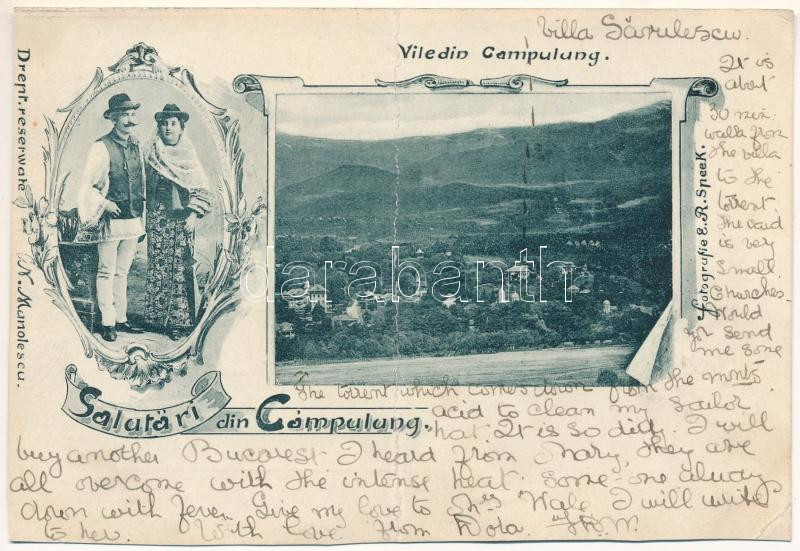 Villa Săvulescu.
Vile din Câmpulung.
Drept. reservate
N. Manolescu.
Fotografie E. R. Speek.
It is
about
30 min:
walk from
the villa
to the
torrent.
The card
is very
small
Churches
Would
you send
me some
The torrent which comes down from the monts
acid to clean my sailor
hat. It is so dirty. I will
Salutări din Câmpulung.
buy another Bucarest I heard from Mary, they are
all overcome with the intense heat. Some-one always
down with fever. Give my love to Mrs Wale, I will write
to her. With love from Dola.
darabanth